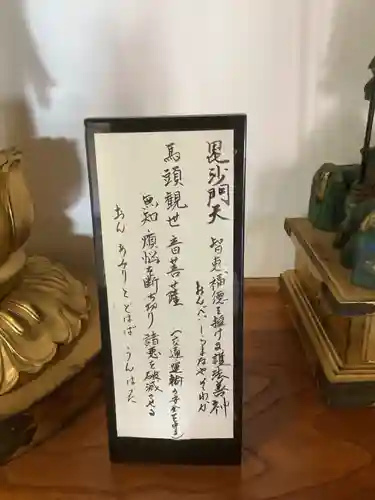 毘沙門天 智恵、福徳を授ける護法善神
おんべいしらまなやそわか
馬頭観世音菩薩 (交通運輸の安全を守る)
無知・煩悩を断ち切り諸悪を破滅させる
おん あみりとどはば うんはった